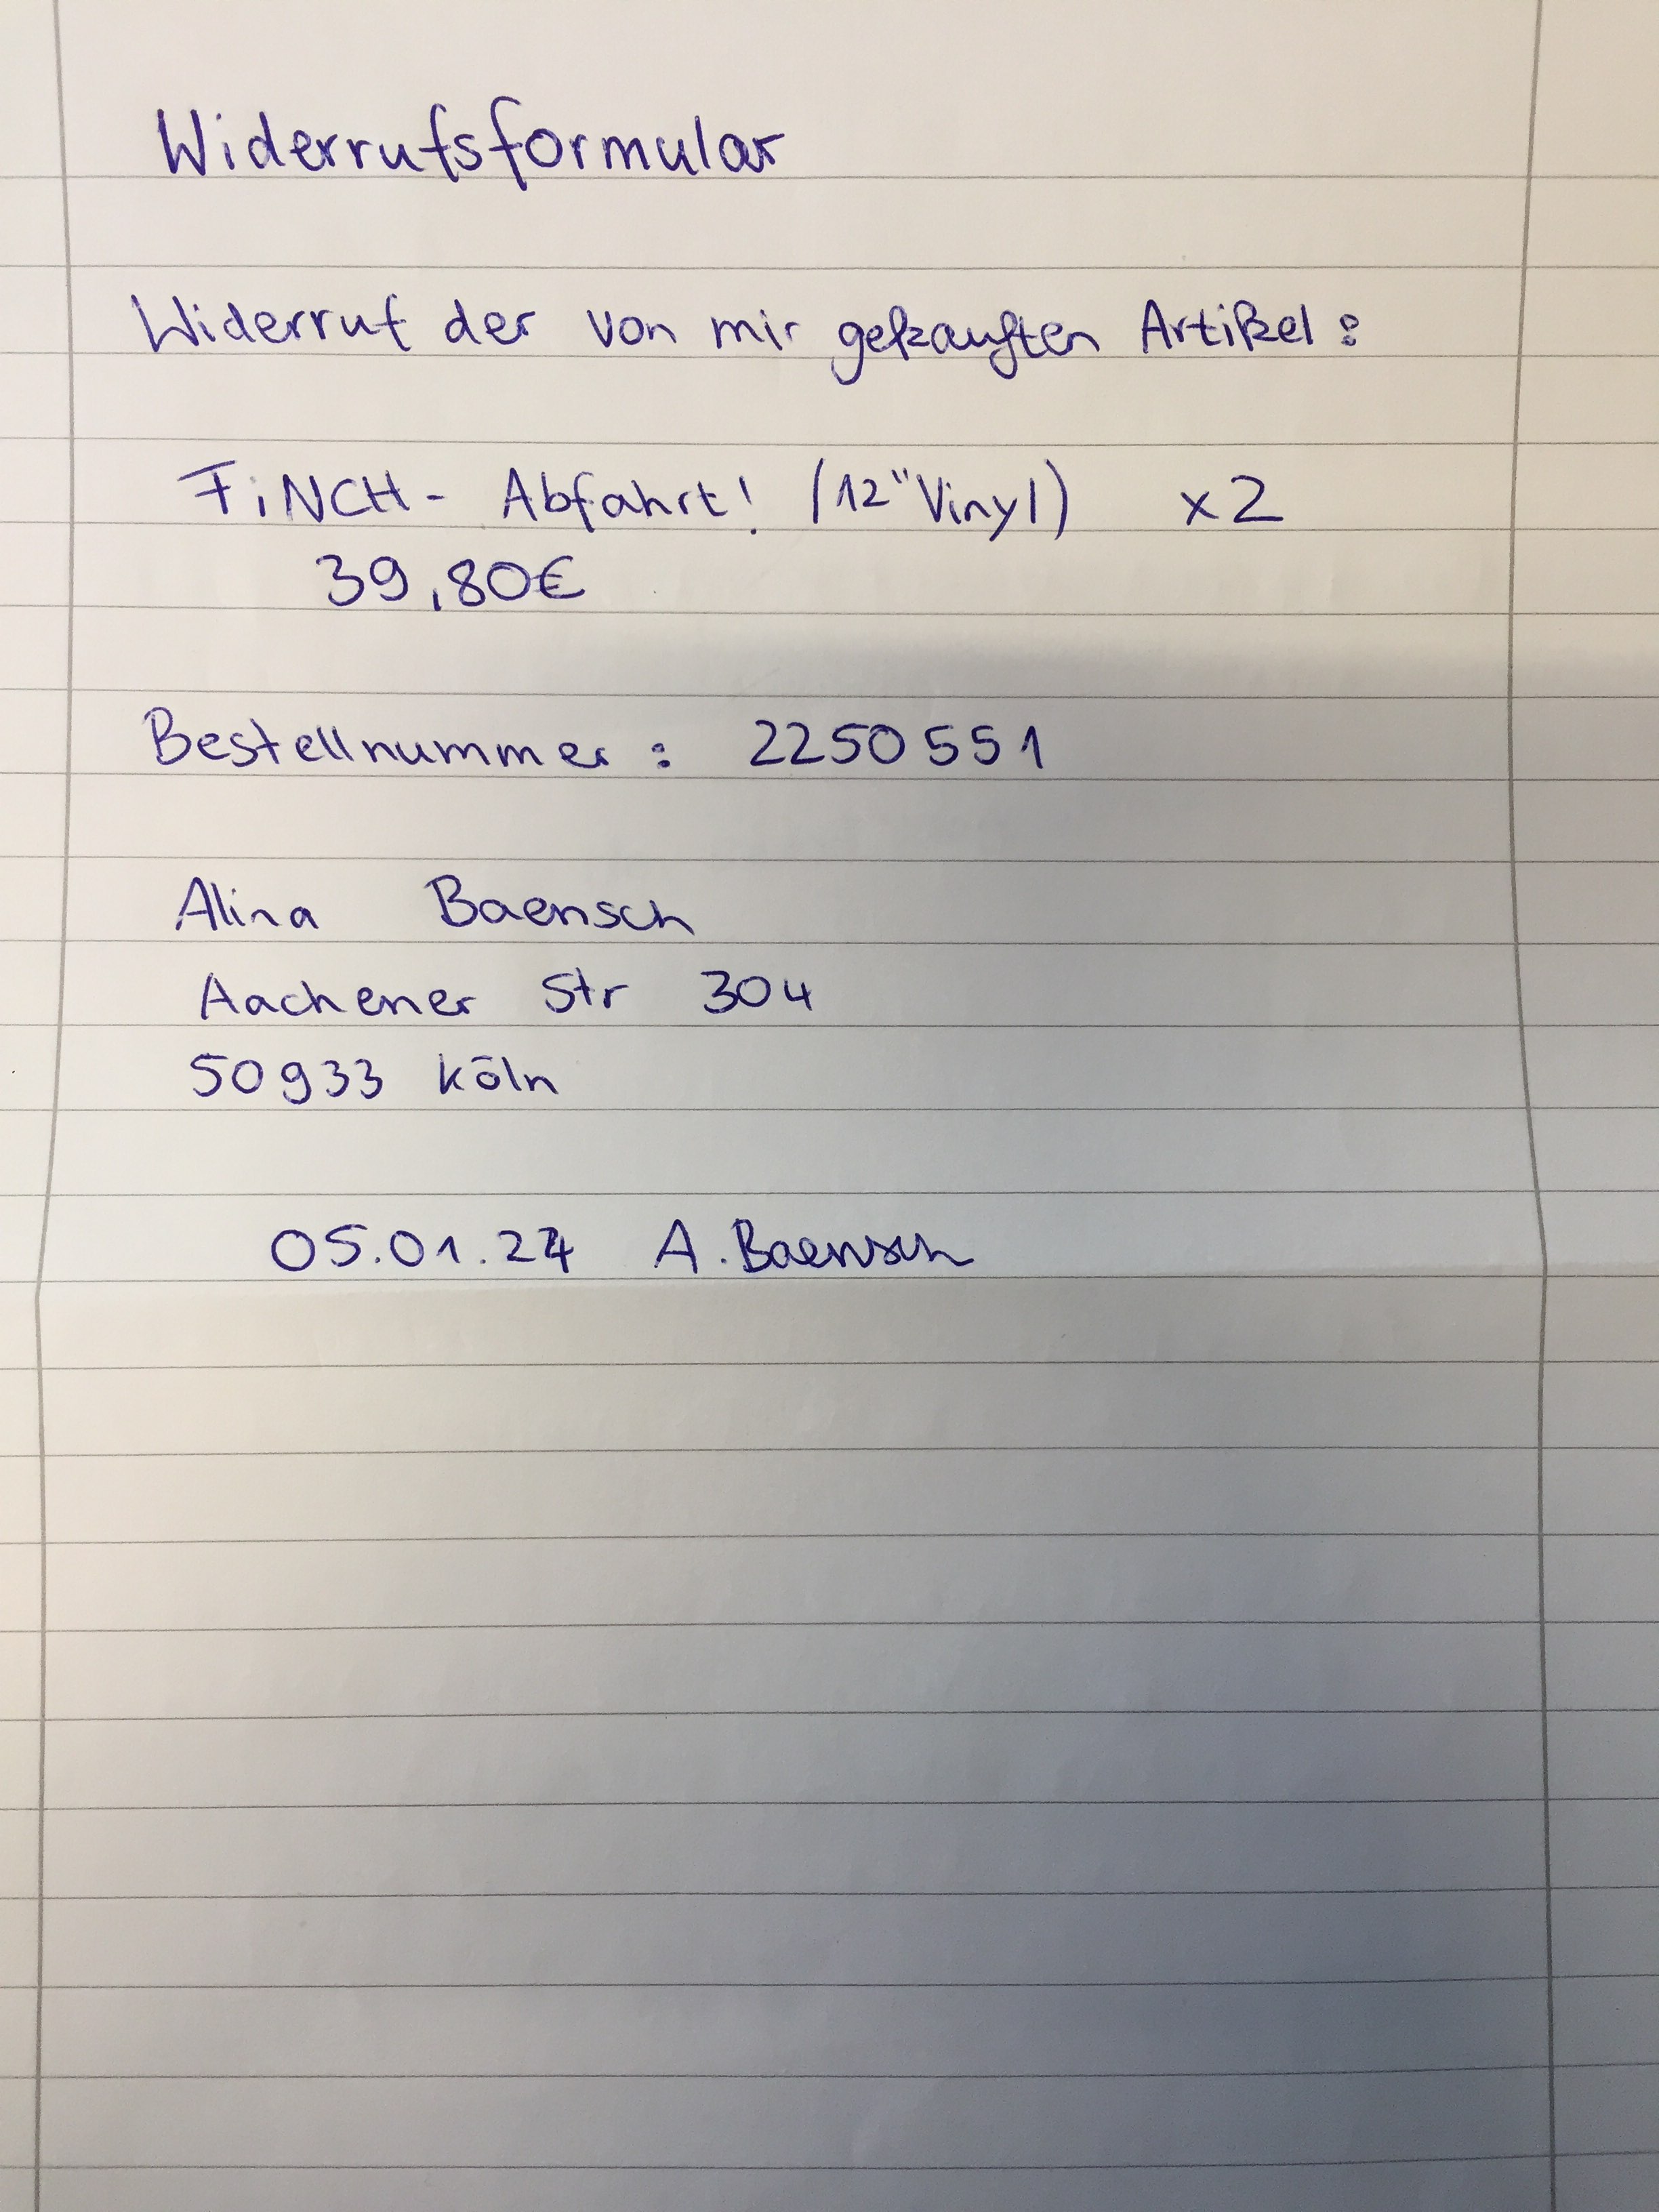 Widerrufsformular
Widerruf der von mir gekauften Artikel:
FiNCH - Abfahrt! (12" Vinyl) x2
39,80€
Bestellnummer: 2250551
Alina Baensch
Aachener Str 304
50933 Köln
05.01.24 A. Baensch